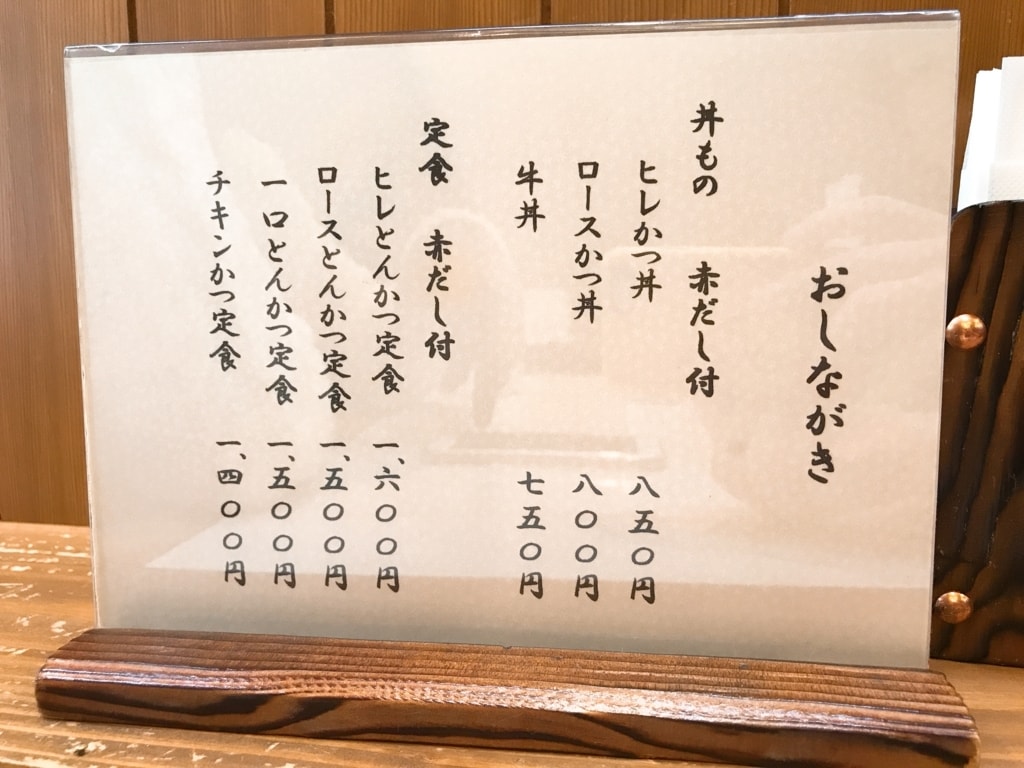 おしながき
丼もの 赤だし付
ヒレかつ丼 八五〇円
ロースかつ丼 八〇〇円
牛丼 七五〇円
定食 赤だし付
ヒレとんかつ定食 一、六〇〇円
ロースとんかつ定食 一、五〇〇円
一口とんかつ定食 一、五〇〇円
チキンかつ定食 一、四〇〇円